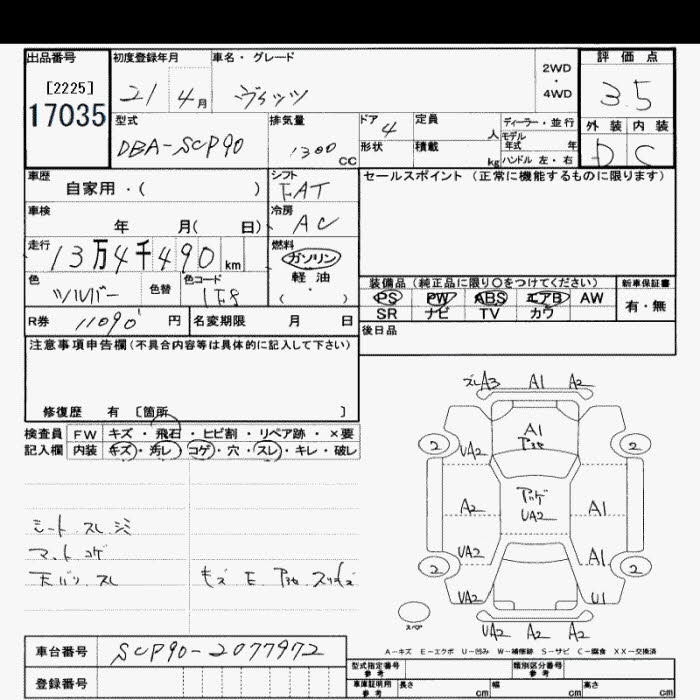 出品番号 初度登録年月 車名・グレード 2WD・4WD 評価点
[2225] 21 4月 ヴィッツ 3.5
17035 外装 内装
型式 排気量 ドア 定員 人 ディーラー・並行 D C
DBA-SCP90 1300 CC 4 モデル年式 年
形状 積載 kg ハンドル 左・右
車歴 シフト セールスポイント(正常に機能するものに限ります)
自家用・( ) FAT
車検 冷房
年 月( 日) AC
走行 燃料
13万4千490 km ガソリン
色 色替 色コード 軽油
シルバー 1F8 ( )
装備品(純正品に限り○をつけてください) 新車保証書
PS PW ABS エアB AW 有・無
SR ナビ TV カワ
R券 11090 円 名変期限 月 日
後日品
注意事項申告欄(不具合内容等は具体的に記入して下さい)
修復歴 有 〔箇所 〕
検査員 FW キズ・飛石・ヒビ割・リペア跡・×要
記入欄 内装 キズ・汚レ・コゲ・穴・スレ・キレ・破レ
シート スレ シミ
マット コゲ
天バリ スレ
ズレA3 A1 A2
2 A1 2
UA2
A2 UA2 A1
UA2 A1
2 2
UA2 U1
スペア
UA2 A2 A2
A-キズ E-エクボ U-凹み W-補修跡 S-サビ C-腐食 XX-交換済
車台番号 SCP90-2077972
型式指定番号 参考 類別区分番号 参考
登録番号
車庫証明用 参考 長さ cm 幅 cm 高さ cm